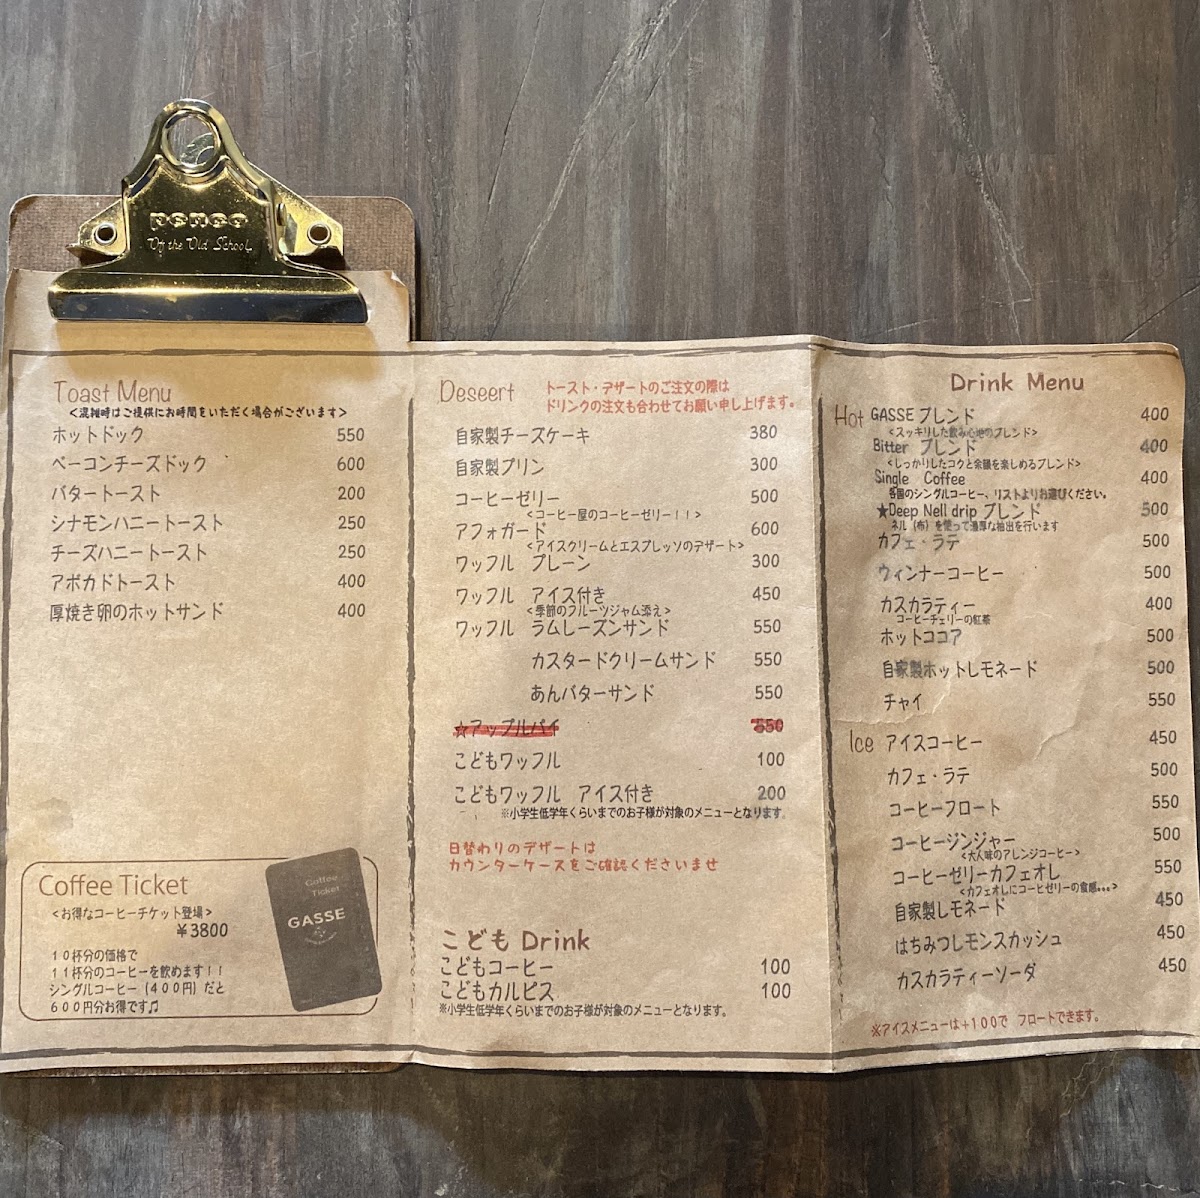 penco
Of the Old School
Toast Menu
<混雑時はご提供にお時間をいただく場合がございます>
ホットドック 550
ベーコンチーズドック 600
バタートースト 200
シナモンハニートースト 250
チーズハニートースト 250
アボカドトースト 400
厚焼き卵のホットサンド 400
Coffee Ticket
<お得なコーヒーチケット登場>
¥3800
10杯分の価格で
11杯分のコーヒーを飲めます!!
シングルコーヒー(400円)だと
600円分お得です♫
Coffee
Ticket
GASSE
Deseert
トースト・デザートのご注文の際は
ドリンクの注文も合わせてお願い申し上げます。
自家製チーズケーキ 380
自家製プリン 300
コーヒーゼリー 500
<コーヒー屋のコーヒーゼリー!!>
アフォガード 600
<アイスクリームとエスプレッソのデザート>
ワッフル プレーン 300
ワッフル アイス付き 450
<季節のフルーツジャム添え>
ワッフル ラムレーズンサンド 550
カスタードクリームサンド 550
あんバターサンド 550
☆アップルパイ 550
こどもワッフル 100
こどもワッフル アイス付き 200
※小学生低学年くらいまでのお子様が対象のメニューとなります。
日替わりのデザートは
カウンターケースをご確認くださいませ
こども Drink
こどもコーヒー 100
こどもカルピス 100
※小学生低学年くらいまでのお子様が対象のメニューとなります。
Drink Menu
Hot GASSE ブレンド 400
<スッキリした飲み心地のブレンド>
Bitter ブレンド 400
<しっかりしたコクと余韻を楽しめるブレンド>
Single Coffee 400
各国のシングルコーヒー、リストよりお選びください。
★Deep Nell drip ブレンド 500
ネル(布)を使って濃厚な抽出を行います
カフェ・ラテ 500
ウィンナーコーヒー 500
カスカラティー 400
コーヒーチェリーの紅茶
ホットココア 500
自家製ホットレモネード 500
チャイ 550
Ice アイスコーヒー 450
カフェ・ラテ 500
コーヒーフロート 550
コーヒージンジャー 500
<大人味のアレンジコーヒー>
コーヒーゼリーカフェオレ 550
<カフェオレにコーヒゼリーの食感…>
自家製レモネード 450
はちみつレモンスカッシュ 450
カスカラティーソーダ 450
※アイスメニューは+100で フロートできます。